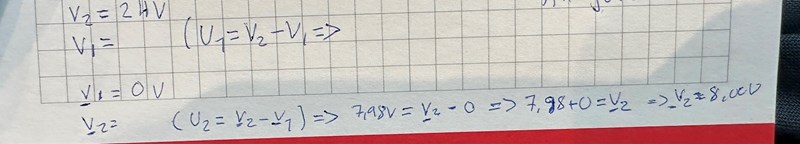 V₂ = 24V
V₁ = (U₁ = V₂ - V₁ =>
V₁ = 0 V
V₂ = (U₂ = V₂ - V₁) => 7,98V = V₂ - 0 => 7,98 + 0 = V₂ => V₂ ≈ 8,00V